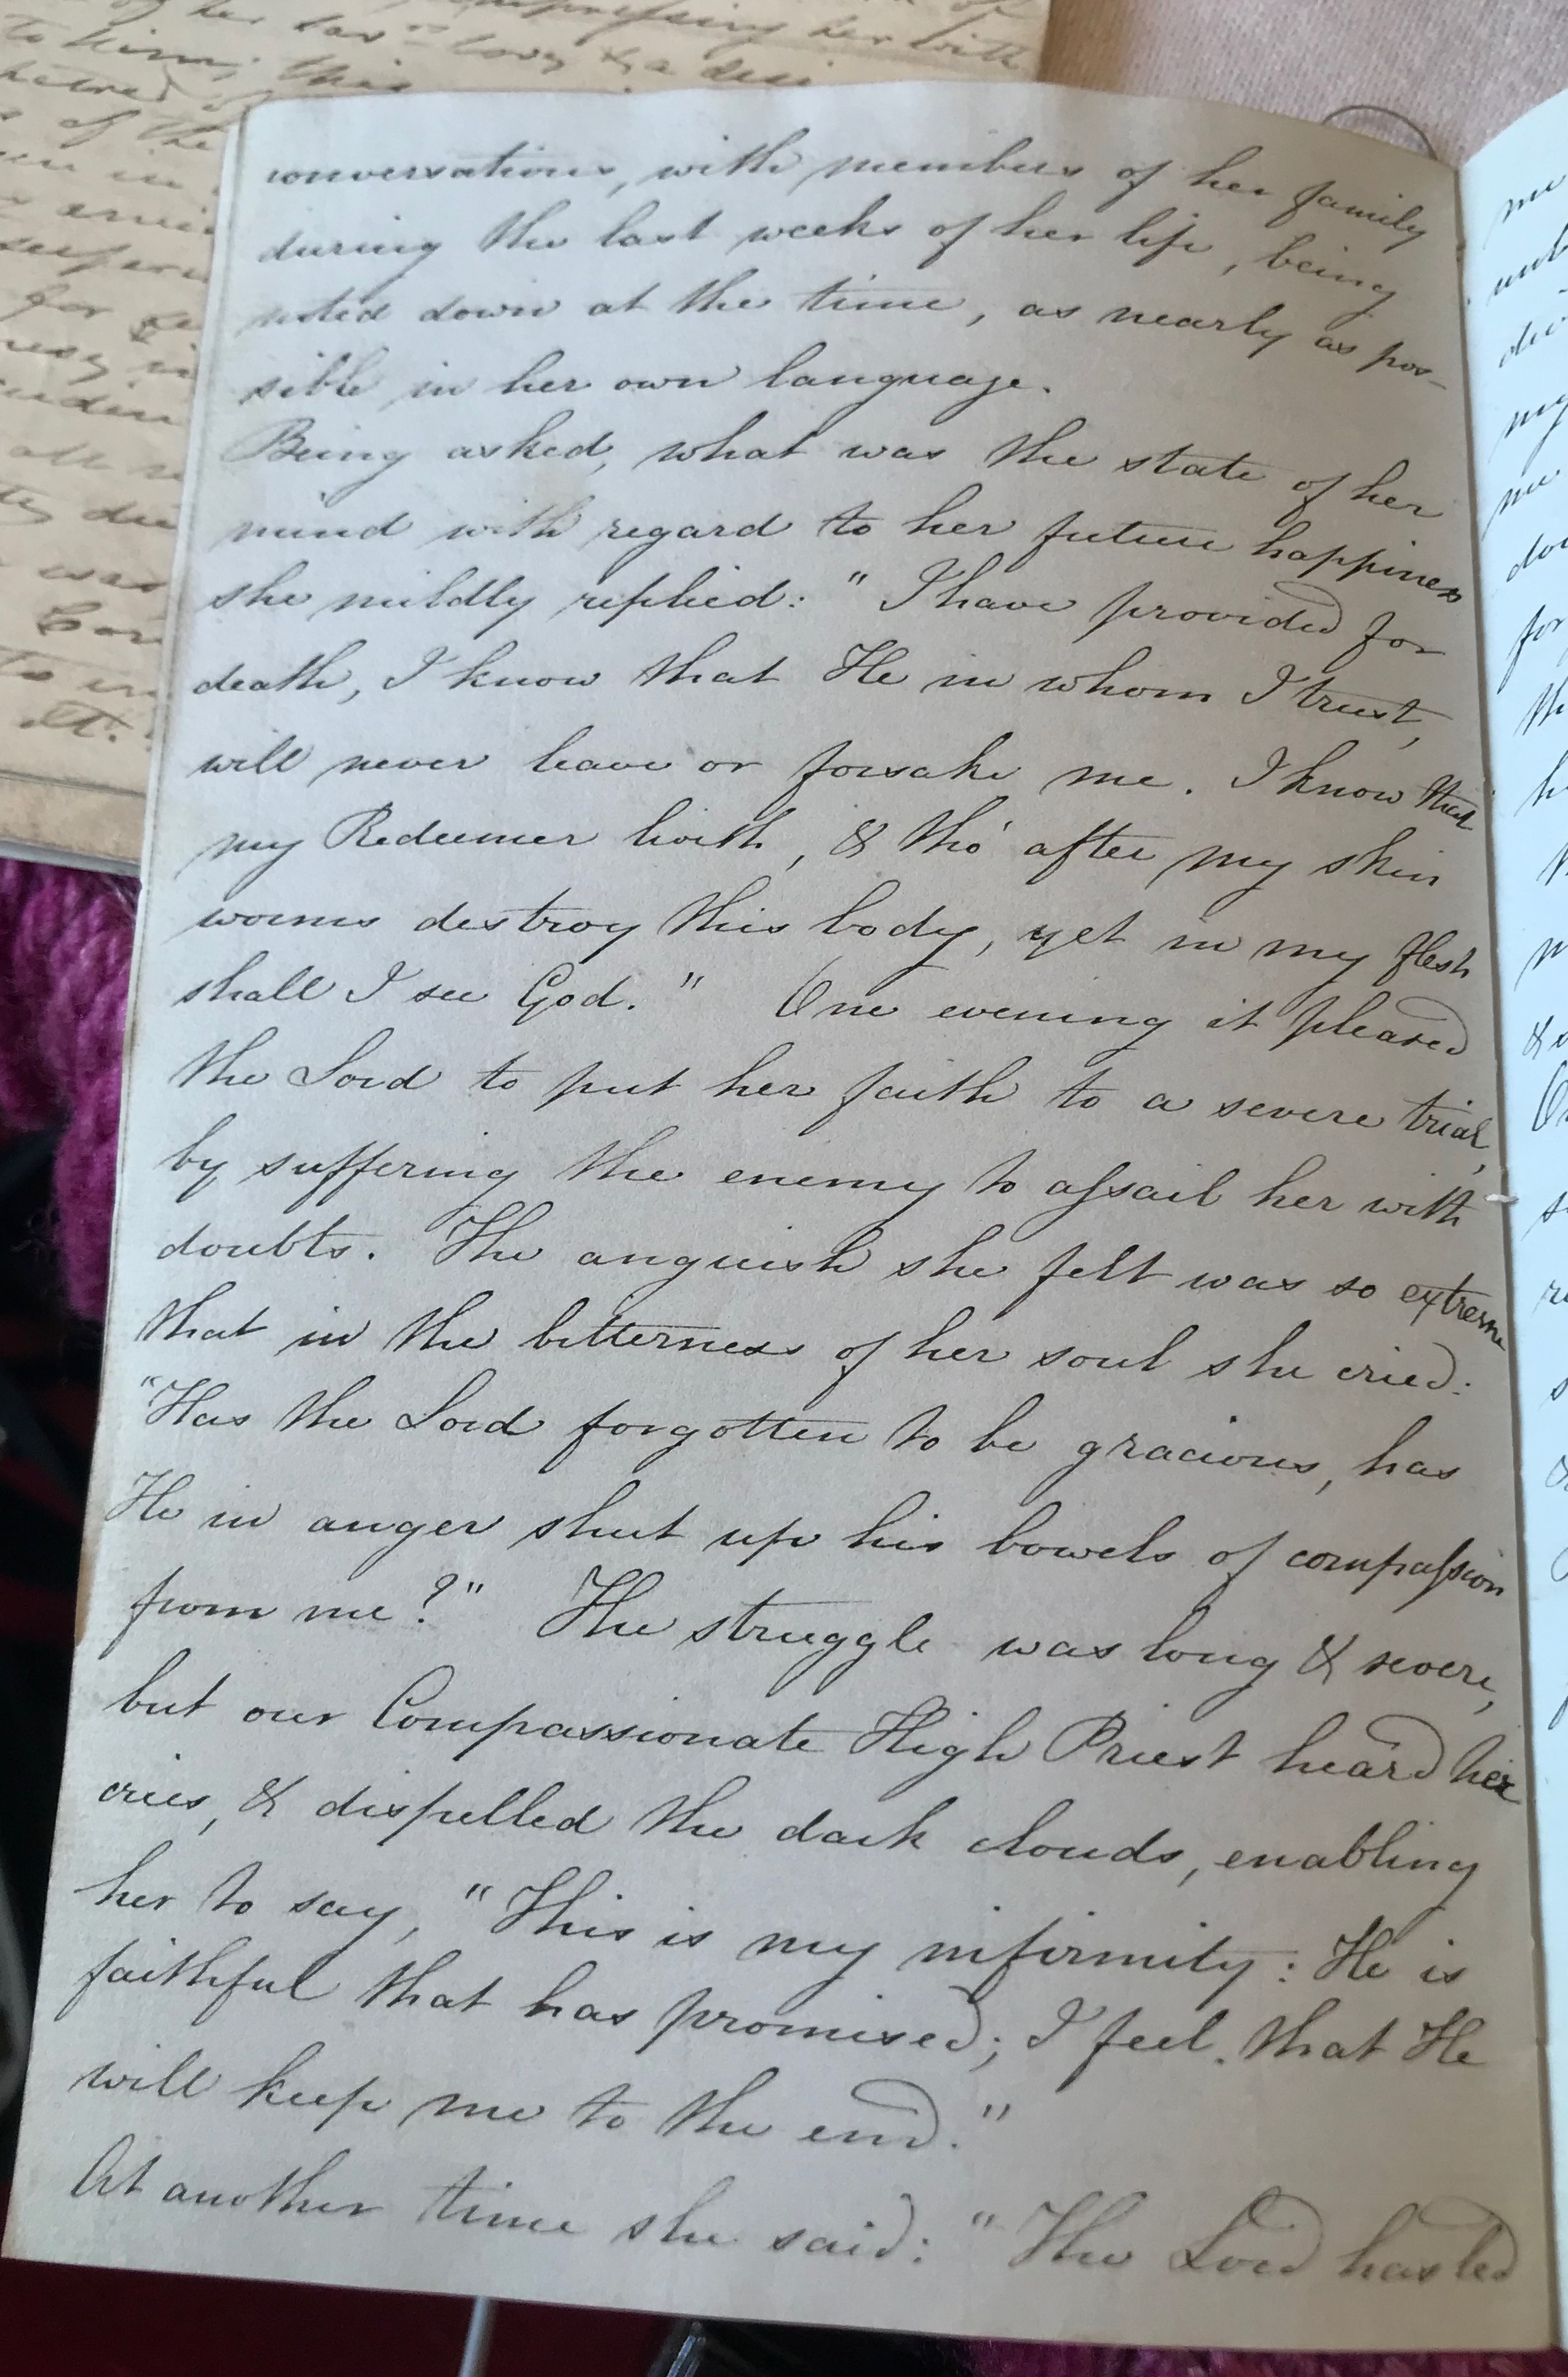 to him; this
of the
for
all
was
Cor
it.
conversations, with members of her family
during the last weeks of her life, being
noted down at the time, as nearly as pos-
sible in her own language.
Being asked, what was the state of her
mind with regard to her future happiness
she mildly replied: "I have provided for
death, I know that He in whom I trust,
will never leave or forsake me. I know that
my Redeemer liveth, & tho' after my skin
worms destroy this body, yet in my flesh
shall I see God." One evening it pleased
the Lord to put her faith to a severe trial,
by suffering the enemy to assail her with
doubts. The anguish she felt was so extreme
that in the bitterness of her soul she cried:
"Has the Lord forgotten to be gracious, has
He in anger shut up his bowels of compassion
from me?" The struggle was long & severe,
but our Compassionate High Priest heard her
cries, & dispelled the dark clouds, enabling
her to say, "This is my infirmity: He is
faithful that has promised; I feel that He
will keep me to the end."
At another time she said: "The Lord has led
my
me
for